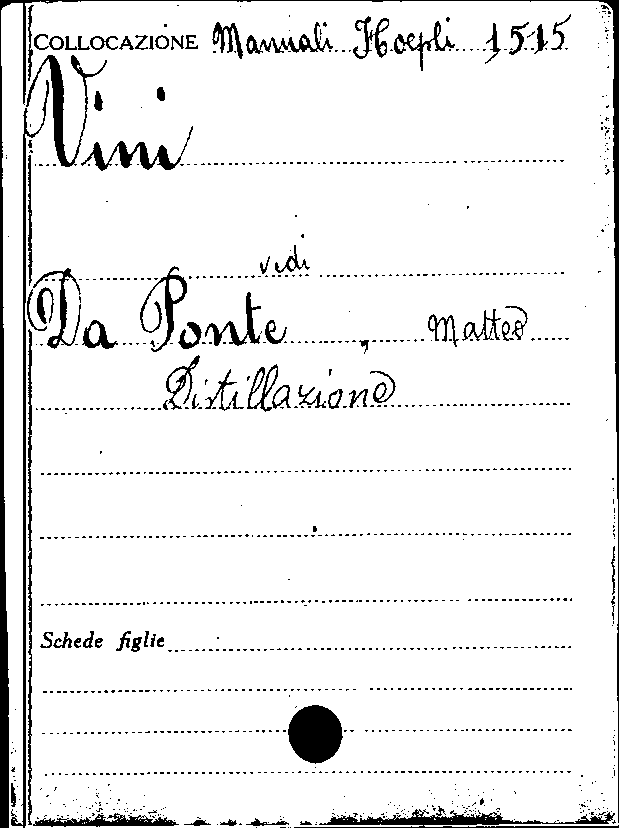 COLLOCAZIONE Manuali Hoepli 1515
Vini
vedi
Da Ponte, Matteo
Distillazione
Schede figlie